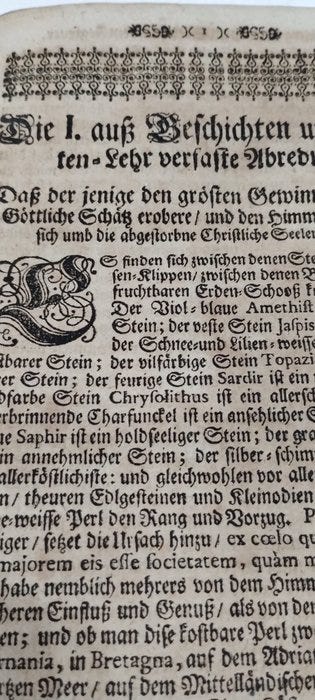 )( 1 )(
Die I. auß Geschichten u
ten-Lehr verfaste Abredu
Daß der jenige den grösten Gewinn
Göttliche Schätz erobere/ und den Himm
sich umb die abgestorbne Christliche Seelen
ES finden sich zwischen denen Ste
sen-Klippen/ zwischen denen B
fruchtbaren Erden-Schooß
Der Viol-blaue Amethist
Stein; der veste Stein Jaspis
der Schnee-und Lilien-weisse
tbarer Stein; der vilfärbige Stein Topazi
er Stein; der feurige Stein Sardir ist ein
dfarbe Stein Chrysolithus ist ein allersch
erbrinnende Charfunckel ist ein ansehlicher S
ue Saphir ist ein holdseeliger Stein; der gra
in annemlicher Stein; der silber-schim
allerköstlichiste: und gleichwohlen vor alle
n/ theuren Edlgesteinen und Kleinodien
e-weisse Perl den Rang und Vorzug. P
iger/ setzet die Ursach hinzu/ ex cœlo qu
majorem eis esse societatem, quàm m
habe nemblich mehrers von dem Himm
heren Einfluß und Genuß/ als von der
en; und ob man dise kostbare Perl zw
rnania, in Bretagna, auf dem Adria
rtzen Meer/ auf dem Mittelländischen